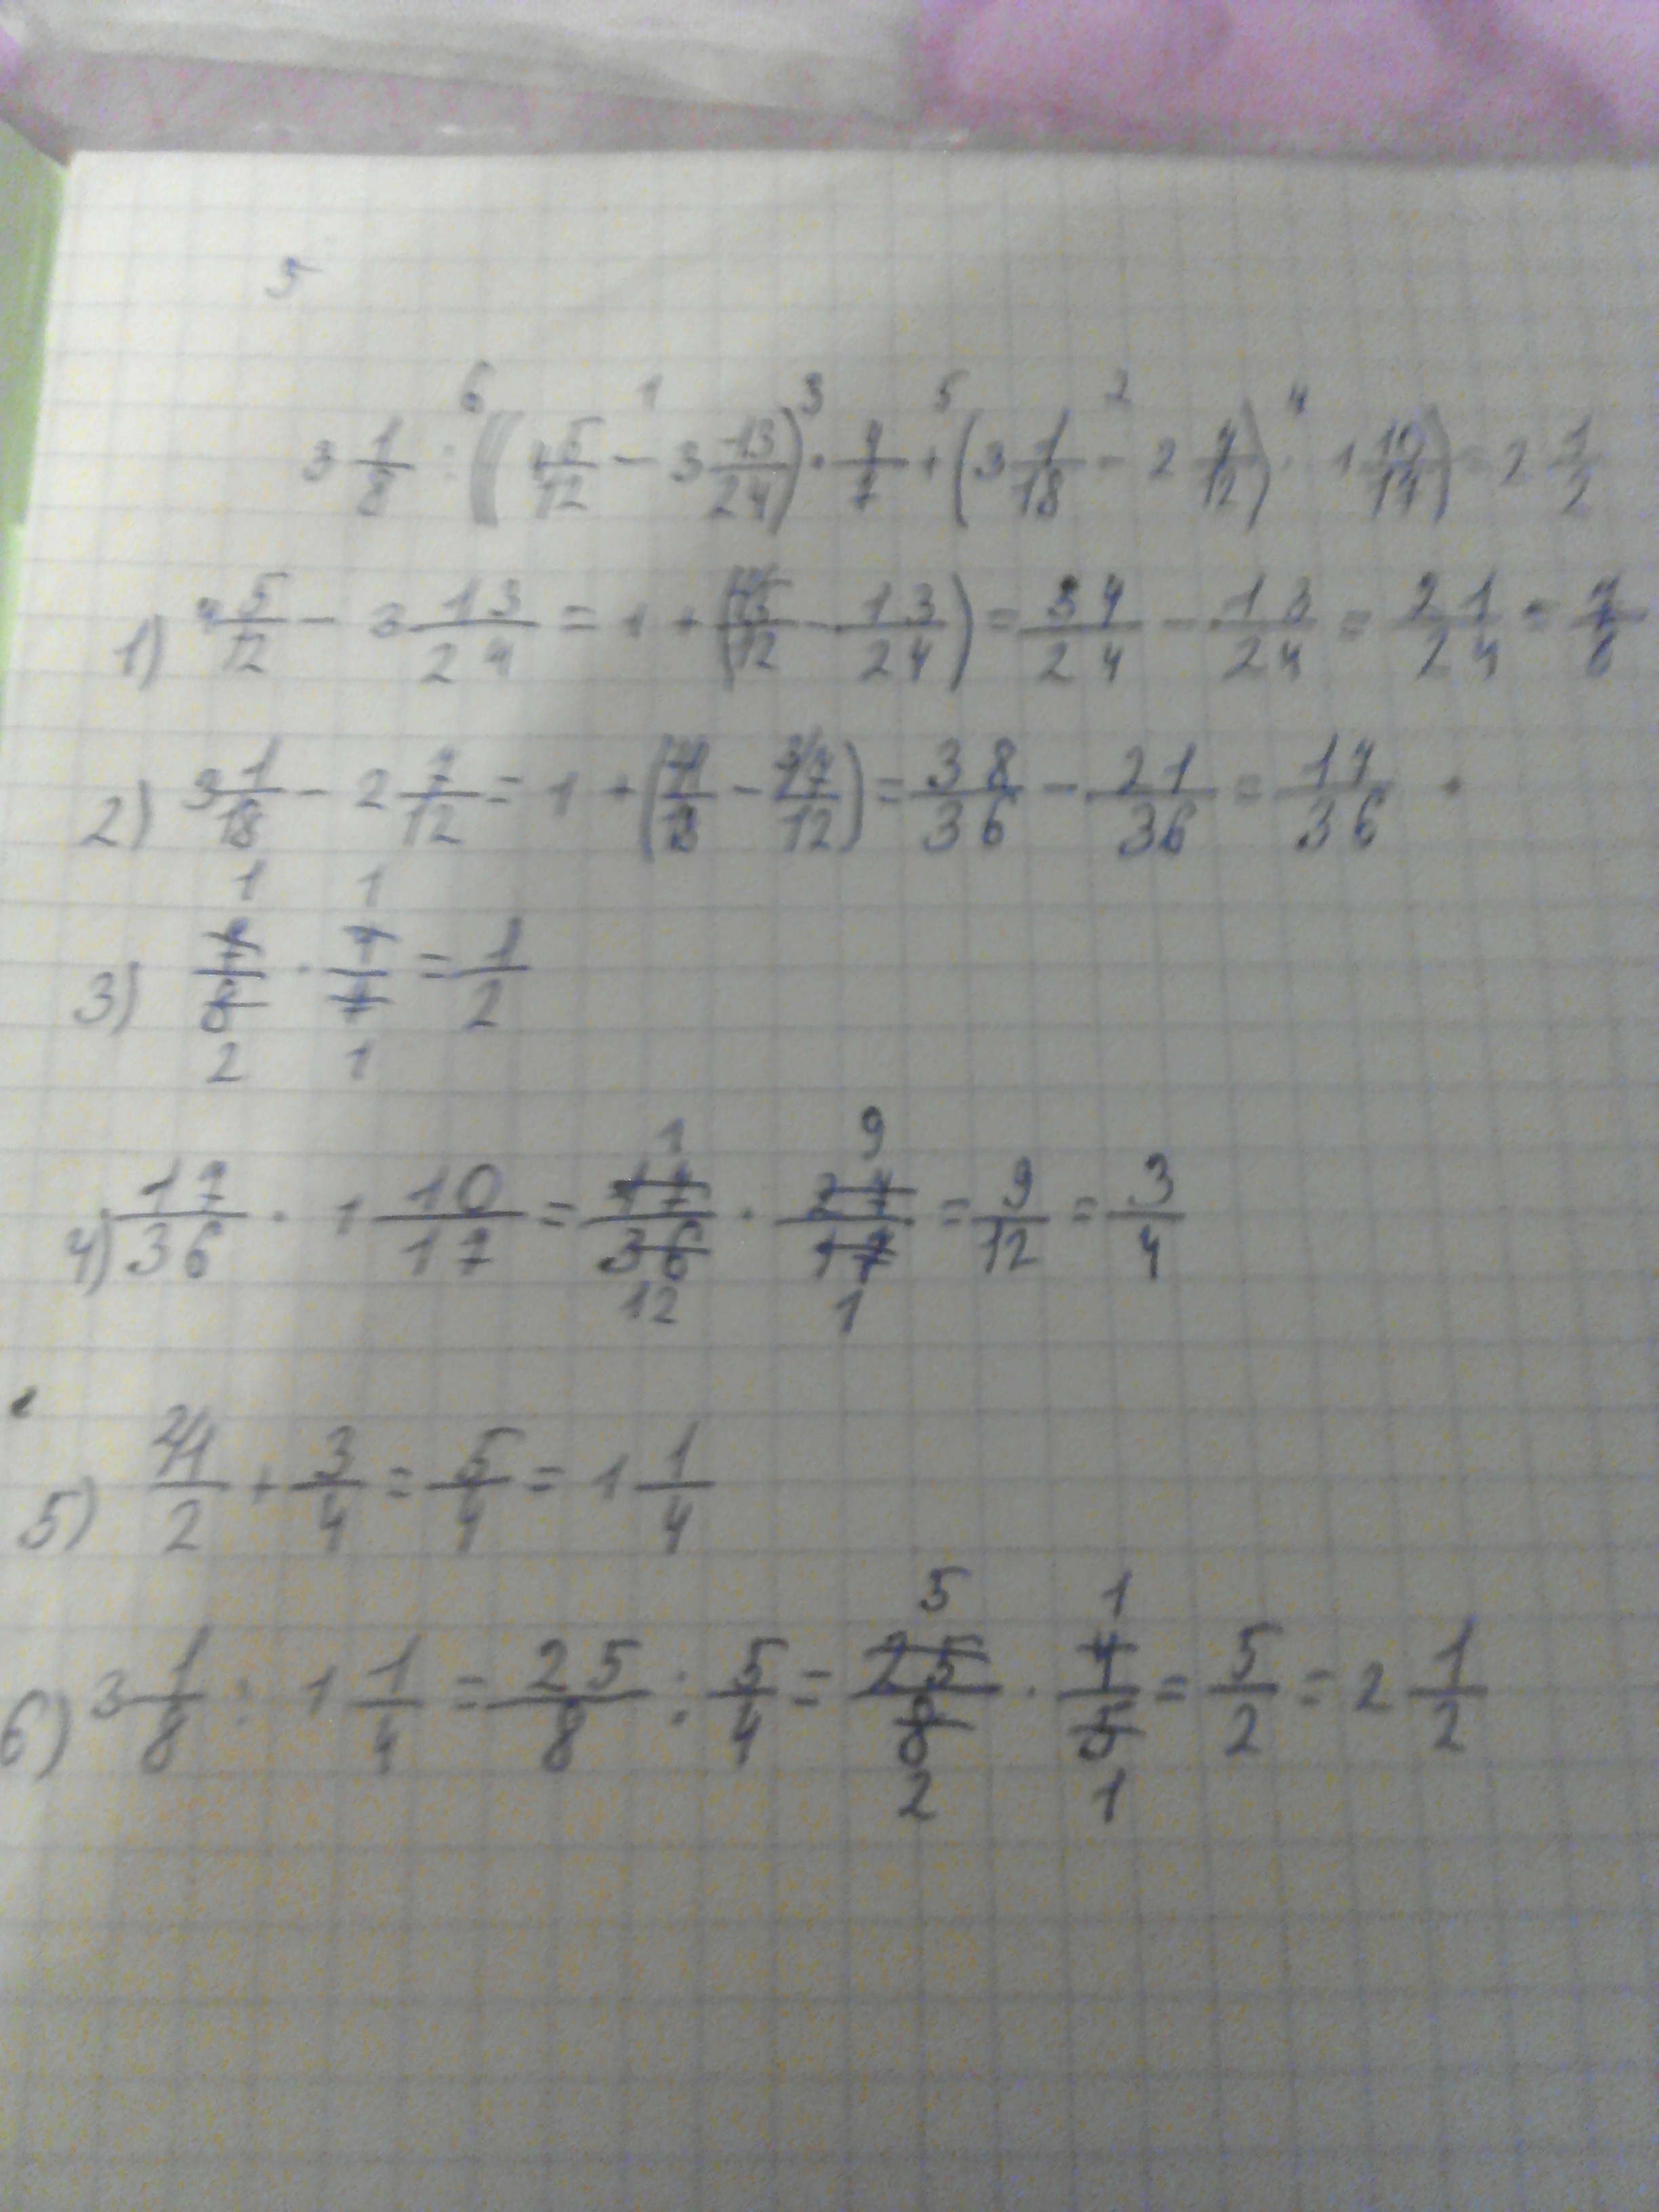 5
6 1 3 5 2 4
3 1/8 : ((4 5/12 - 3 13/24) · 4/7 + (3 1/18 - 2 7/12) · 1 10/17) = 2 1/2
1) 4 5/12 - 3 13/24 = 1 + (5/12 - 13/24) = 34/24 - 13/24 = 21/24 = 7/8
2) 3 1/18 - 2 7/12 = 1 + (1/18 - 7/12) = 38/36 - 21/36 = 17/36
1 1
3) 7/8 · 4/7 = 1/2
2 1
1 9
4) 17/36 · 1 10/17 = 17/36 · 27/17 = 9/12 = 3/4
12 1
5) 1/2 + 3/4 = 5/4 = 1 1/4
5 1
6) 3 1/8 : 1 1/4 = 25/8 : 5/4 = 25/8 · 4/5 = 5/2 = 2 1/2
2 1